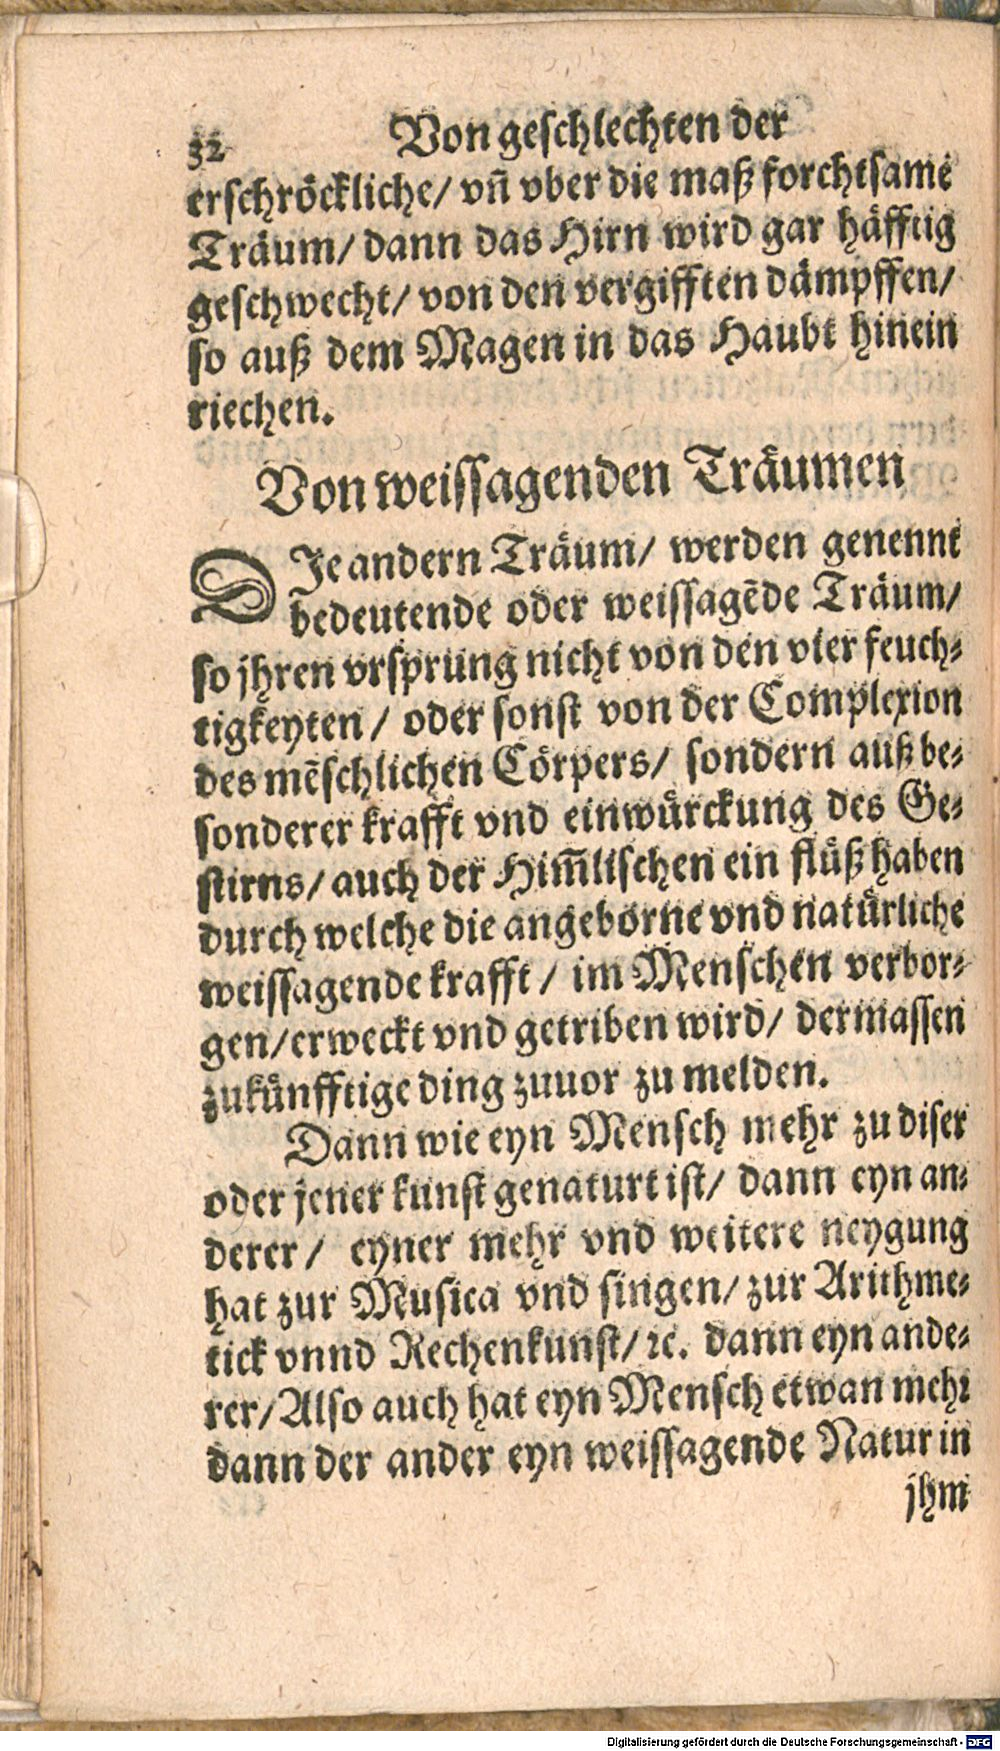 32 Von geschlechten der
erschröckliche/ vñ vber die maß forchtsame
Träum/ dann das Hirn wird gar häfftig
geschwecht/ von den vergifften dämpffen/
so auß dem Magen in das Haubt hinein
riechen.
Von weissagenden Träumen
DJe andern Träum/ werden genennt
bedeutende oder weissagẽde Träum/
so jhren vrsprung nicht von den vier feuch-
tigkeyten/ oder sonst von der Complexion
des mẽschlichen Cörpers/ sondern auß be-
sonderer krafft vnd einwürckung des Ge-
stirns/ auch der Him̃lischen ein flüß haben
durch welche die angeborne vnd natürliche
weissagende krafft/ im Menschen verbor-
gen/erweckt vnd getriben wird/ dermassen
zukünfftige ding zuuor zu melden.
Dann wie eyn Mensch mehr zu diser
oder jener kunst genaturt ist/ dann eyn an-
derer/ eyner mehr vnd weitere neygung
hat zur Musica vnd singen/ zur Arithme-
tick vnnd Rechenkunst/ ꝛc. dann eyn ande-
rer/ Also auch hat eyn Mensch etwan mehr
dann der ander eyn weissagende Natur in
jhm
Digitalisierung gefördert durch die Deutsche Forschungsgemeinschaft - DFG